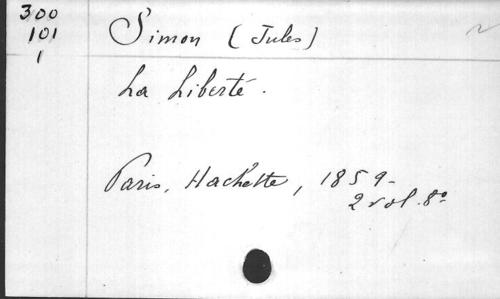 300
101
1
Simon (Jules)
La Liberté.
Paris, Hachette, 1859-
2 vol. 8º